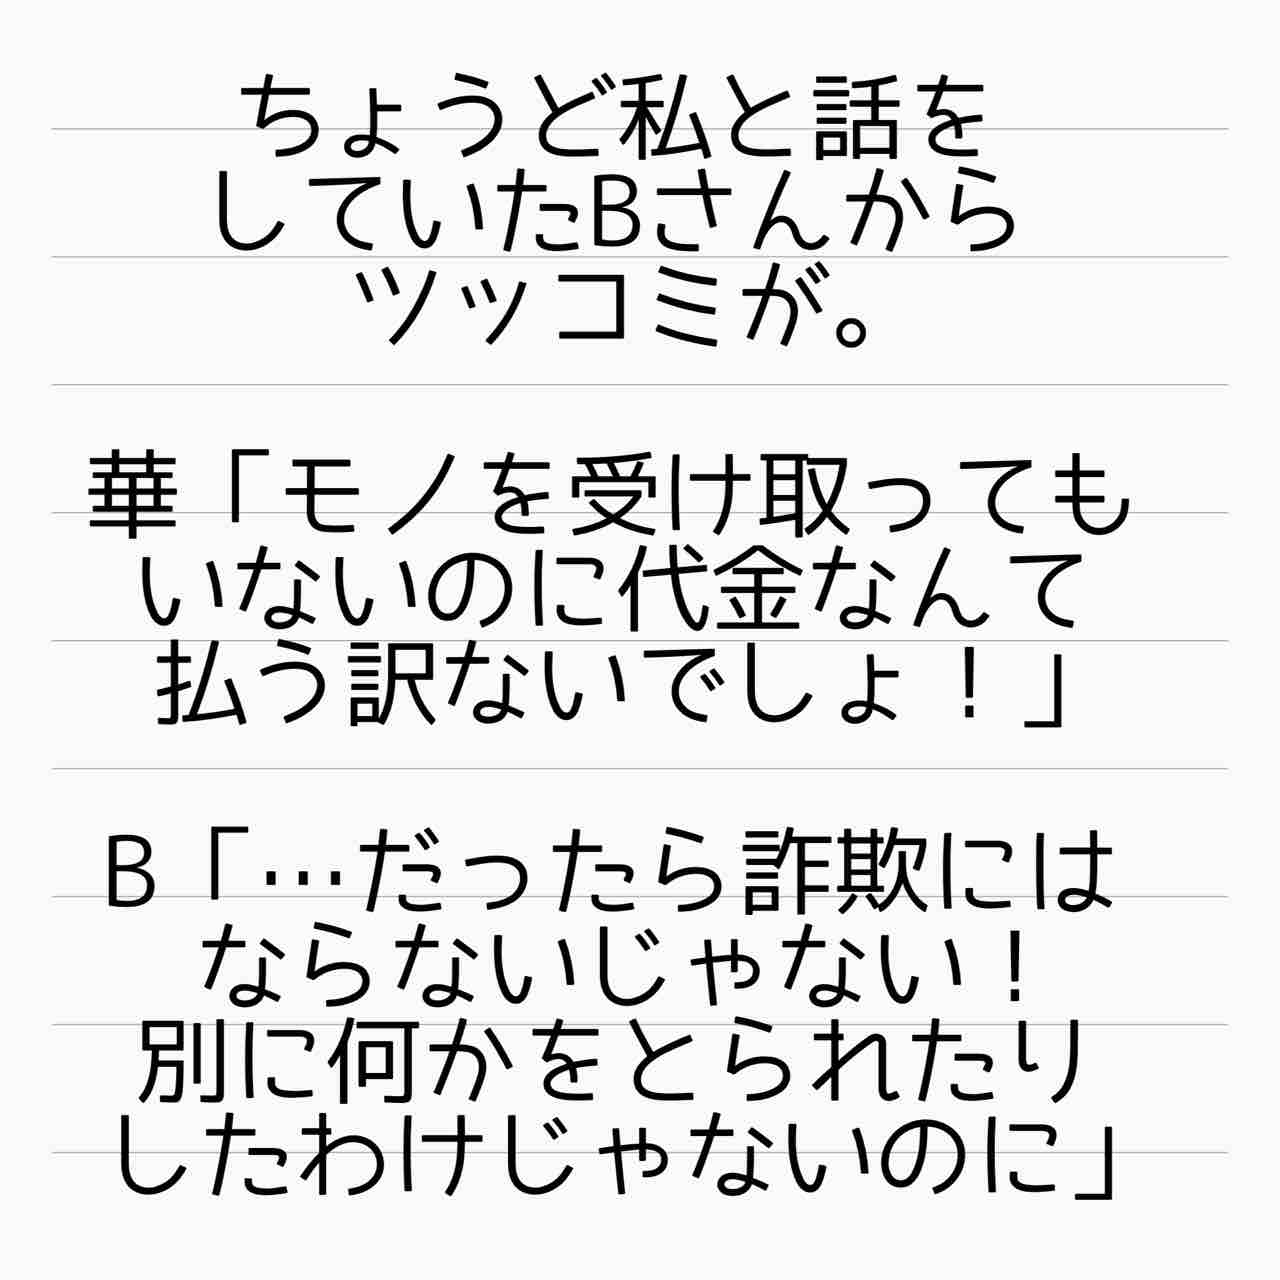 ちょうど私と話を
していたBさんから
ツッコミが。
華「モノを受け取っても
いないのに代金なんて
払う訳ないでしょ！」
B「…だったら詐欺には
ならないじゃない！
別に何かをとられたり
したわけじゃないのに」